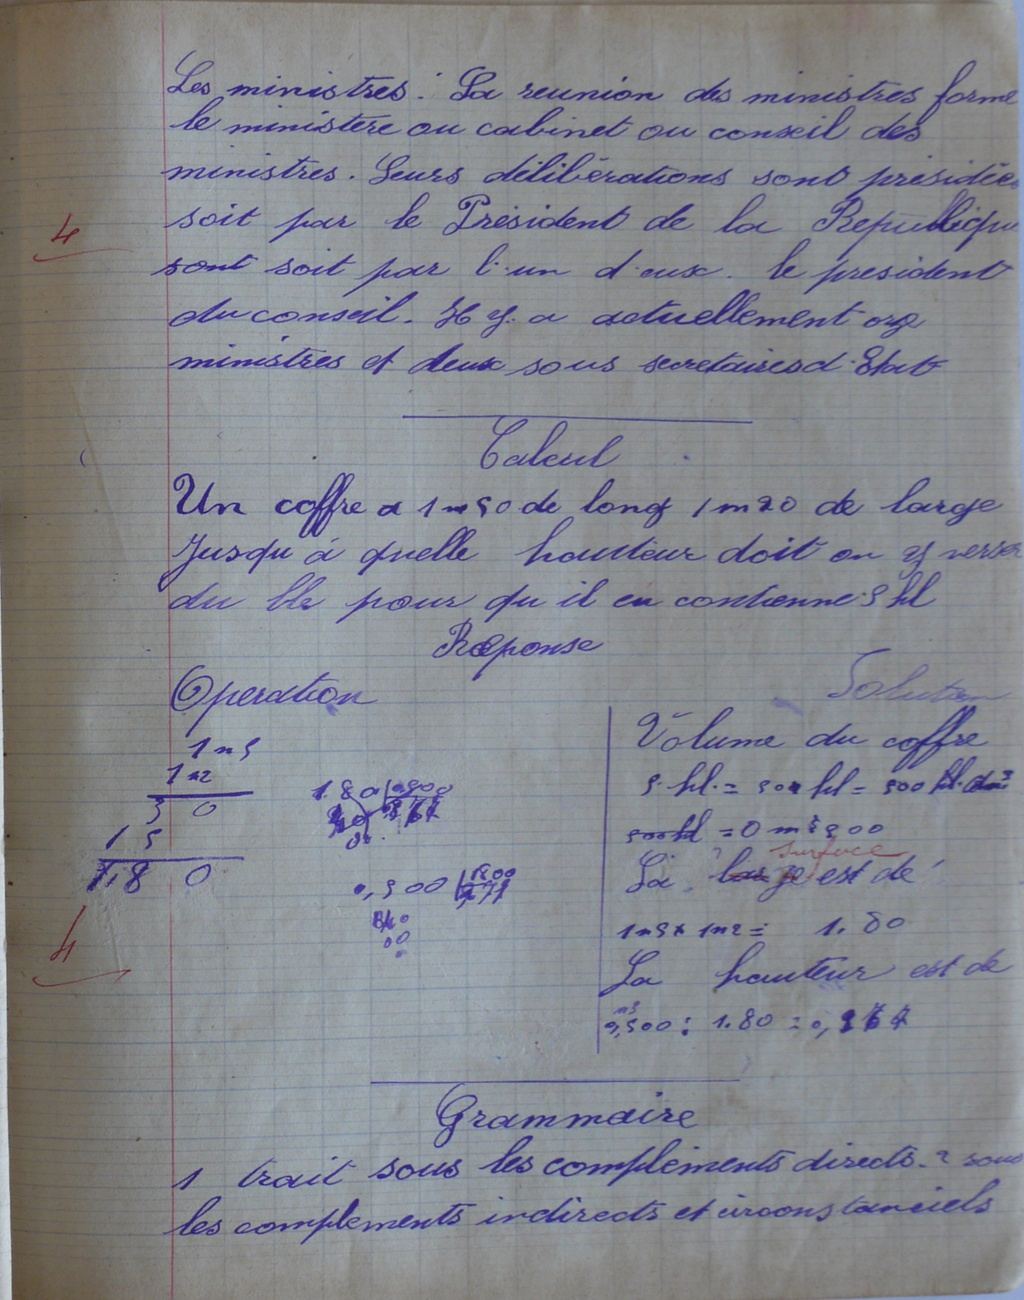 Les ministres : La reunion des ministres forme
le ministère ou cabinet ou conseil des
ministres. Leurs délibérations sont présidées
soit par le Président de la République
sont soit par l'un d'eux. le président
du conseil. Il y a actuellement onze
ministres et deux sous secretaires d'Etat
4
Calcul
Un coffre a 1m50 de long 1m20 de large
Jusqu'à quelle hauteur doit on y verser
du blé pour qu'il en contienne 5 hl
Réponse
Operation
Solution
1m5
1m2
3 0
1 5
1,8 0
0,500
4
Volume du coffre
5 hl. = 500 hl = 500 dm3
500 hl = 0 m3 500
surface
La large est de
1m5 x 1m2 = 1.80
La hauteur est de
m3
0,500 : 1.80 = 0,
Grammaire
1 trait sous les compléments directs. 2 sous
les compléments indirects et circonstanciels